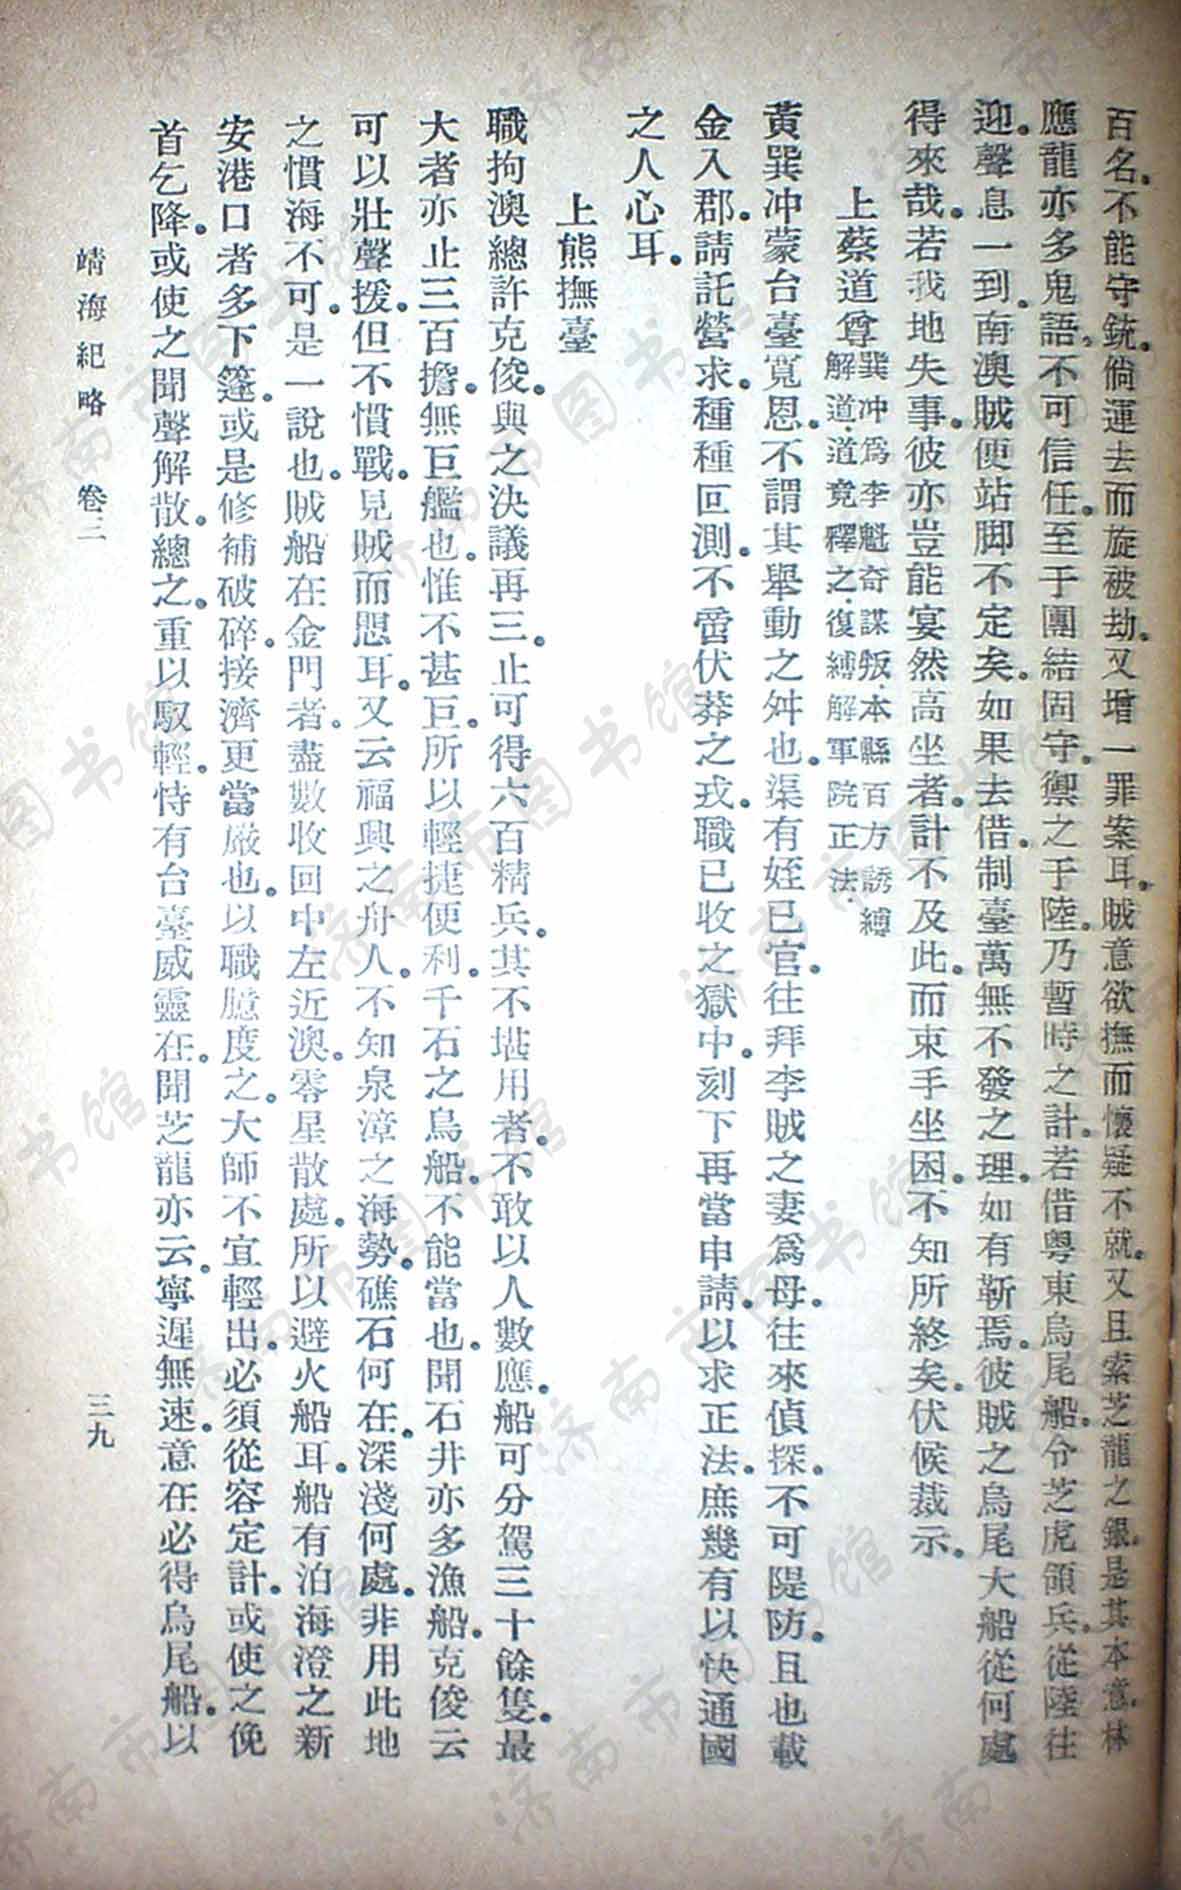 百名。不能守銃。倘運去而旋被劫。又增一罪案耳。賊意欲撫而懷疑不就。又且索芝龍之銀。是其本意。林
應龍亦多鬼語。不可信任。至于團結固守。禦之于陸。乃暫時之計。若借粵東烏尾船。令芝虎領兵。從陸往
迎。聲息一到。南澳賊便站脚不定矣。如果去借。制臺萬無不發之理。如有靳焉。彼賊之烏尾大船從何處
得來哉。若我地失事。彼亦豈能宴然高坐者。計不及此。而束手坐困。不知所終矣。伏候裁示。
上蔡道尊巽冲爲李魁奇謀叛．本縣百方誘縛
解道．道竟釋之．復縛解軍院正法．
黃巽冲蒙台臺寬恩。不謂其舉動之舛也。渠有姪巳官。往拜李賊之妻爲母。往來偵探。不可隄防。且也載
金入郡。請託營求。種種叵測。不啻伏莽之戎。職已收之獄中。刻下再當申請。以求正法。庶幾有以快通國
之人心耳。
上熊撫臺
職拘澳總許克俊。與之決議再三。止可得六百精兵。其不堪用者。不敢以人數應。船可分駕三十餘隻。最
大者亦止三百擔。無巨艦也。惟不甚巨。所以輕捷便利。千石之鳥船。不能當也。聞石井亦多漁船。克俊云
可以壯聲援。但不慣戰。見賊而恩耳。又云福興之舟人。不知泉漳之海勢。礁石何在。深淺何處。非用此地
之慣海不可。是一說也。賊船在金門者。盡數收回中左近澳。零星散處。所以避火船耳。船有泊海澄之新
安港口者多下篷。或是修補破碎。接濟更當嚴也。以職臆度之。大師不宜輕出。必須從容定計。或使之俛
首乞降。或使之聞聲解散。總之。重以馭輕。恃有台臺威靈在。聞芝龍亦云。寧遲無速。意在必得烏尾船。以
靖海紀略　卷三　三九